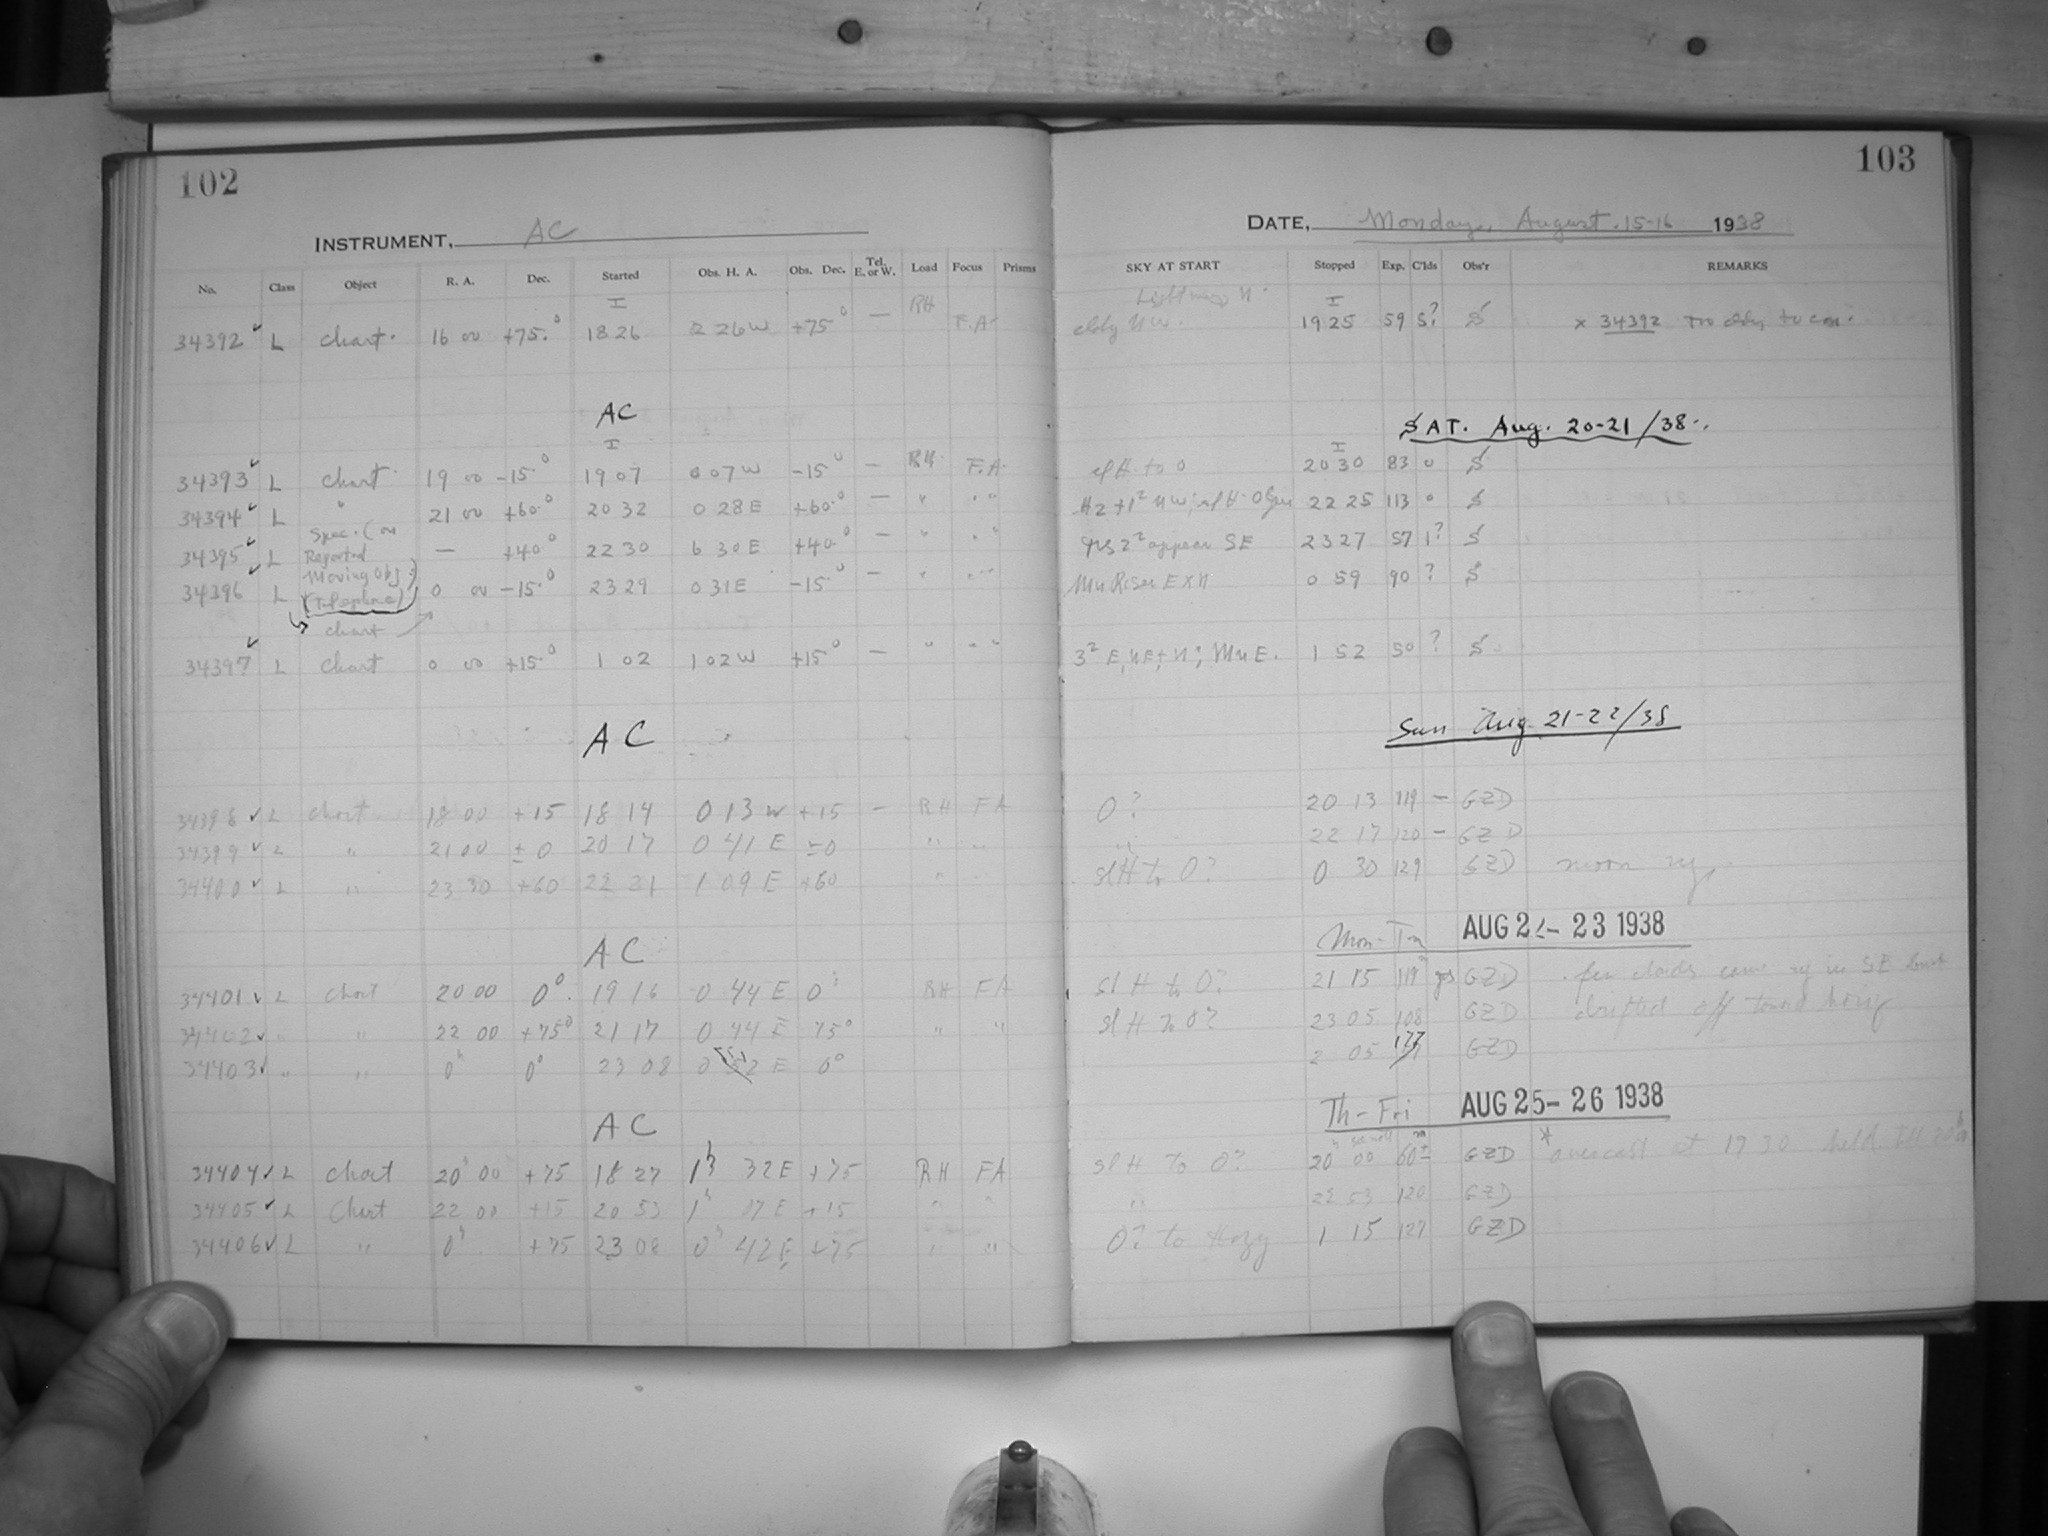 102
INSTRUMENT, AC
No. Class Object R. A. Dec. Started Obs. H. A. Obs. Dec. Tel. E. or W. Load Focus Prisms
I RH
34392 ✓ L Chart. 16 00 +75.° 18 26 2 26 W +75° — F.A.
AC
I
34393 ✓ L Chart. 19 00 -15.° 19 07 0 07 W -15° — RH F.A.
34394 ✓ L " 21 00 +60.° 20 32 0 28 E +60.° — " " "
34395 ✓ L Spec. (on Reported Moving Obj. — +40.° 22 30 6 30 E +40.° — " " "
34396 ✓ L (Telephone) 0 00 -15.° 23 29 0 31 E -15.° — " " "
chart
34397 ✓ L Chart 0 00 +15.° 1 02 1 02 W +15° — " " "
AC
34398 ✓ L Chart 18 00 +15 18 14 0 13 W +15 — RH FA
34399 ✓ L " 21 00 ±0 20 17 0 41 E ±0 " "
34400 ✓ L " 23 30 +60 22 21 1 09 E +60 "
AC
34401 ✓ L Chart 20 00 0°. 19 16 0 44 E 0° RH FA
34402 ✓ " " 22 00 +75° 21 17 0 44 E 75° " "
34403 ✓ " " 0ʰ 0° 23 08 0 E 0°
AC
34404 ✓ L Chart 20ʰ 00 +75 18 27 1ʰ 32 E +75 RH FA
34405 ✓ L Chart 22 00 +15 20 53 1ʰ 07 E +15 " "
34406 ✓ L " 0ʰ +75 23 08 0ʰ 42 E +75 " "
103
DATE, Monday, August. 15-16 1938
SKY AT START Stopped Exp. C'lds Obs'r REMARKS
Lightning N. I
cldy NW. 19 25 59 5? S x 34392 too cldy to con.
SAT. Aug. 20-21/38.
I
sl H. to 0 20 30 83 0 S
22 25 113 0 S
appear SE 23 27 57 1? S
Mn Rises E x N 0 59 90 ? S
3² E, NE + N; Mn E. 1 52 50 ? S
Sun Aug. 21-22/38
0? 20 13 119 — GZD
" 22 17 120 — GZD
sl H to 0? 0 30 129 GZD moon up
Mon-Tu AUG 22-23 1938
sl H to 0? 21 15 119 yes GZD few clouds came up in SE but
sl H to 0? 23 05 108 GZD drifted off toward horiz
2 05 177 GZD
Th-Fri AUG 25-26 1938
sl H to 0? 20ʰ 00 60± GZD * overcast at 19 30 held till 20ʰ
" 22 53 120 GZD
0? to Hazy 1 15 127 GZD